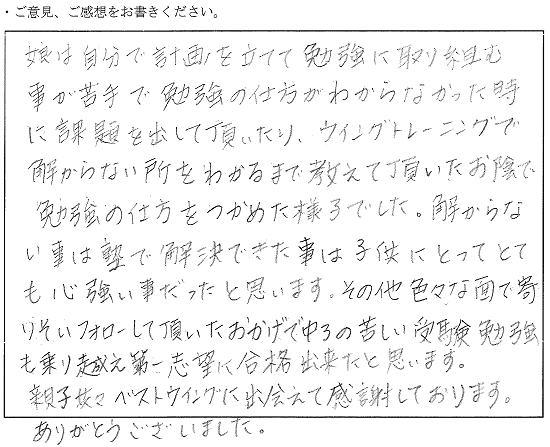 ・ご意見、ご感想をお書きください。
娘は自分で計画を立てて勉強に取り組む
事が苦手で勉強の仕方がわからなかった時
に課題を出して頂いたり、ウイングトレーニングで
解からない所をわかるまで教えて頂いたお陰で
勉強の仕方をつかめた様子でした。解からな
い事は塾で解決できた事は子供にとってとて
も心強い事だったと思います。その他色々な面で寄
りそいフォローして頂いたおかげで中3の苦しい受験勉強
も乗り越え第一志望に合格出来たと思います。
親子共々ベストウイングに出会えて感謝しております。
ありがとうございました。